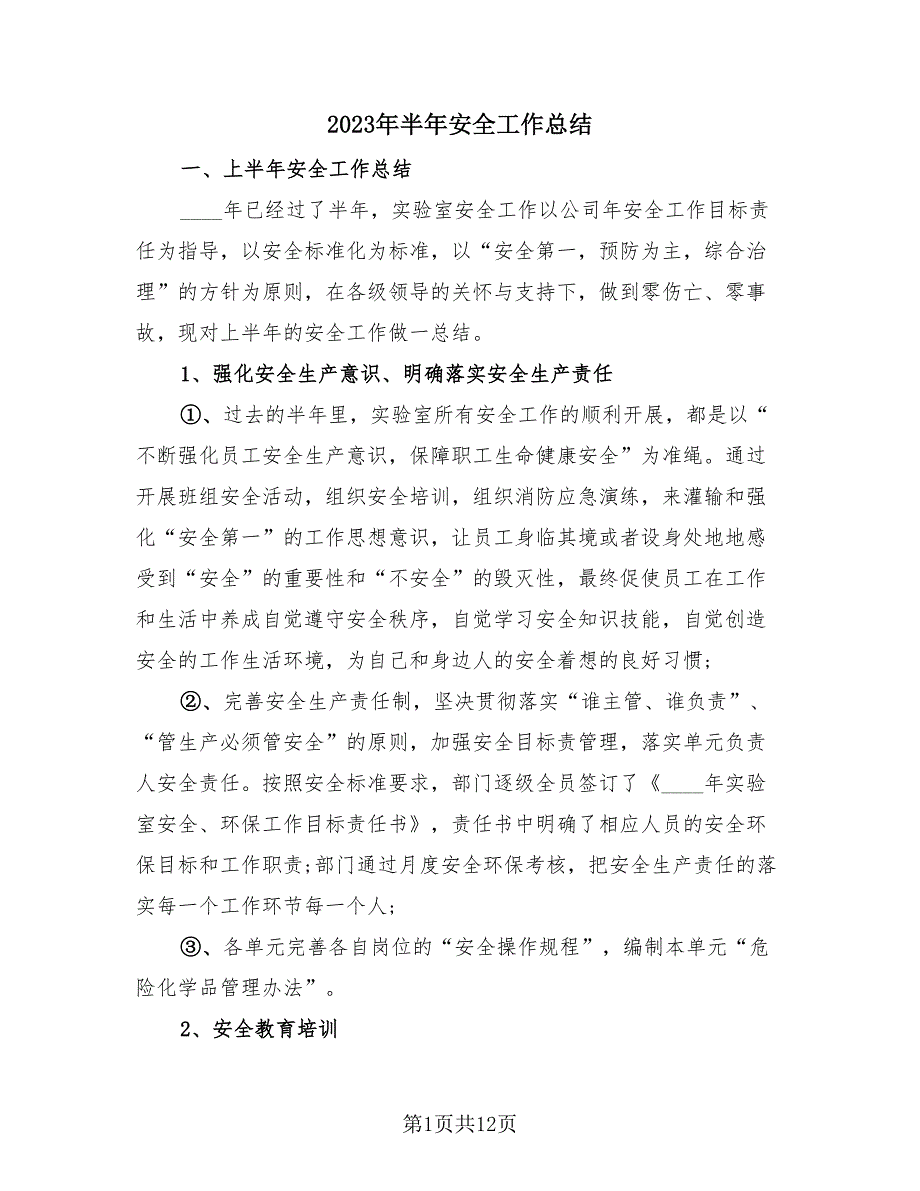 2023年半年安全工作总结
一、上半年安全工作总结
____年已经过了半年，实验室安全工作以公司年安全工作目标责
任为指导，以安全标准化为标准，以“安全第一，预防为主，综合治
理”的方针为原则，在各级领导的关怀与支持下，做到零伤亡、零事
故，现对上半年的安全工作做一总结。
1、强化安全生产意识、明确落实安全生产责任
①、过去的半年里，实验室所有安全工作的顺利开展，都是以“
不断强化员工安全生产意识，保障职工生命健康安全”为准绳。通过
开展班组安全活动，组织安全培训，组织消防应急演练，来灌输和强
化“安全第一”的工作思想意识，让员工身临其境或者设身处地地感
受到“安全”的重要性和“不安全”的毁灭性，最终促使员工在工作
和生活中养成自觉遵守安全秩序，自觉学习安全知识技能，自觉创造
安全的工作生活环境，为自己和身边人的安全着想的良好习惯;
②、完善安全生产责任制，坚决贯彻落实“谁主管、谁负责”、
“管生产必须管安全”的原则，加强安全目标责管理，落实单元负责
人安全责任。按照安全标准要求，部门逐级全员签订了《____年实验
室安全、环保工作目标责任书》，责任书中明确了相应人员的安全环
保目标和工作职责;部门通过月度安全环保考核，把安全生产责任的落
实每一个工作环节每一个人;
③、各单元完善各自岗位的“安全操作规程”，编制本单元“危
险化学品管理办法”。
2、安全教育培训
第1页共12页